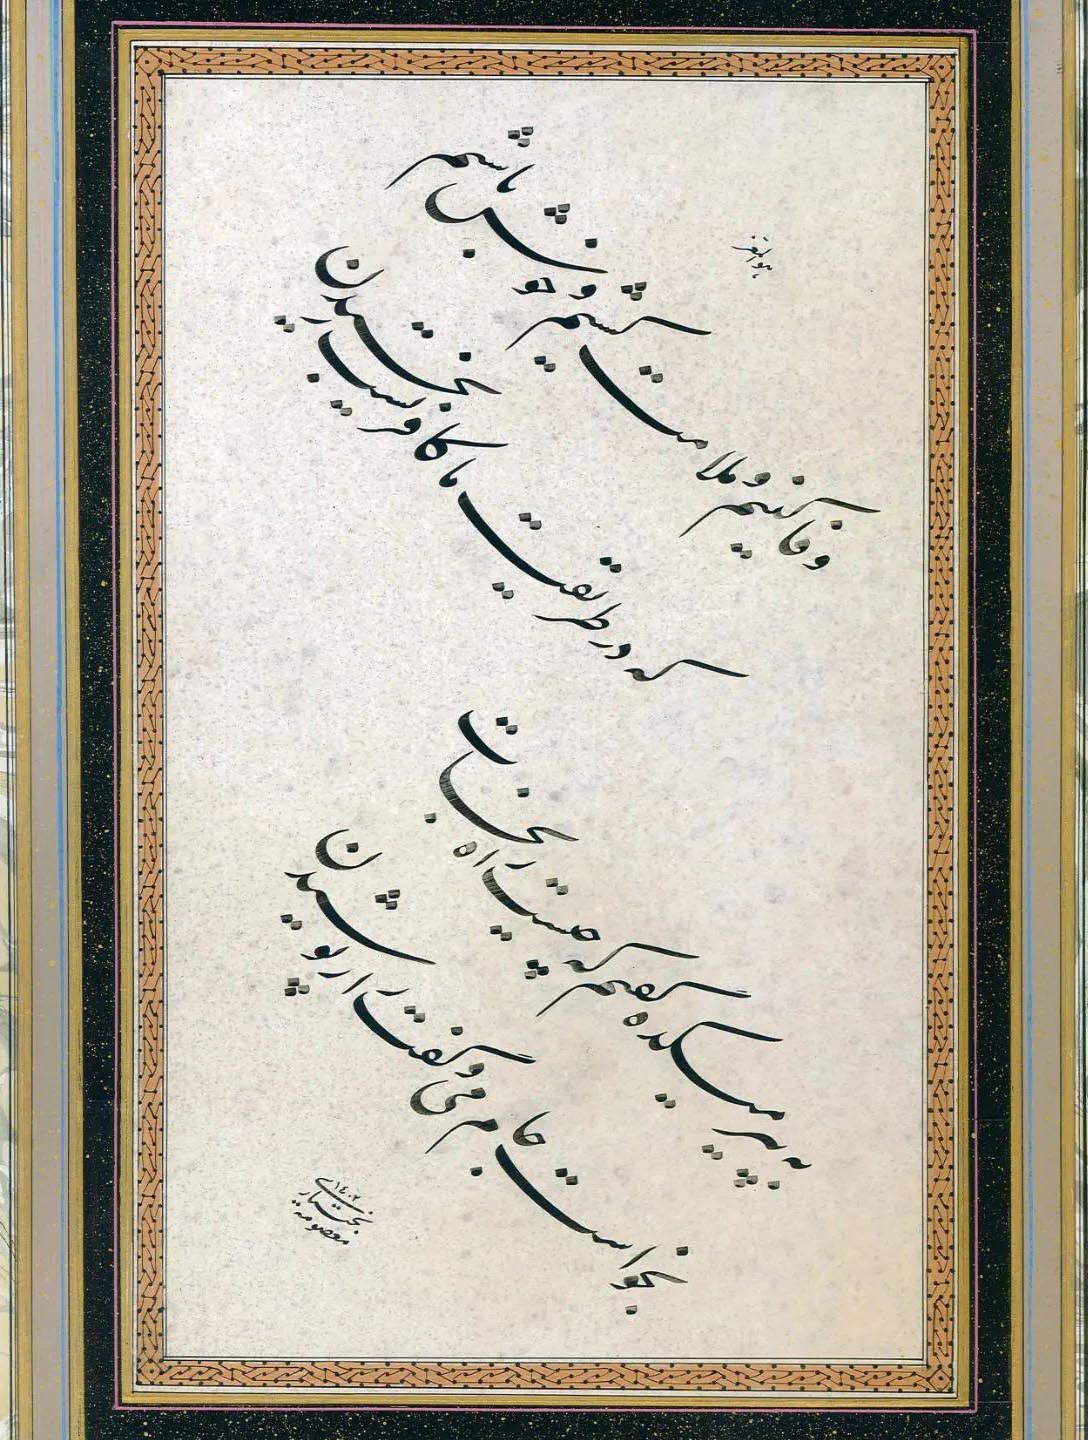 وفا کنیم و ملامت کشیم و خوش باشیم
که در طریقت ما کافریست رنجیدن
به پیر میکده گفتم که چیست راه نجات
بخواست جام می و گفت راز پوشیدن
معصومه بختیاری ۱۴۰۲